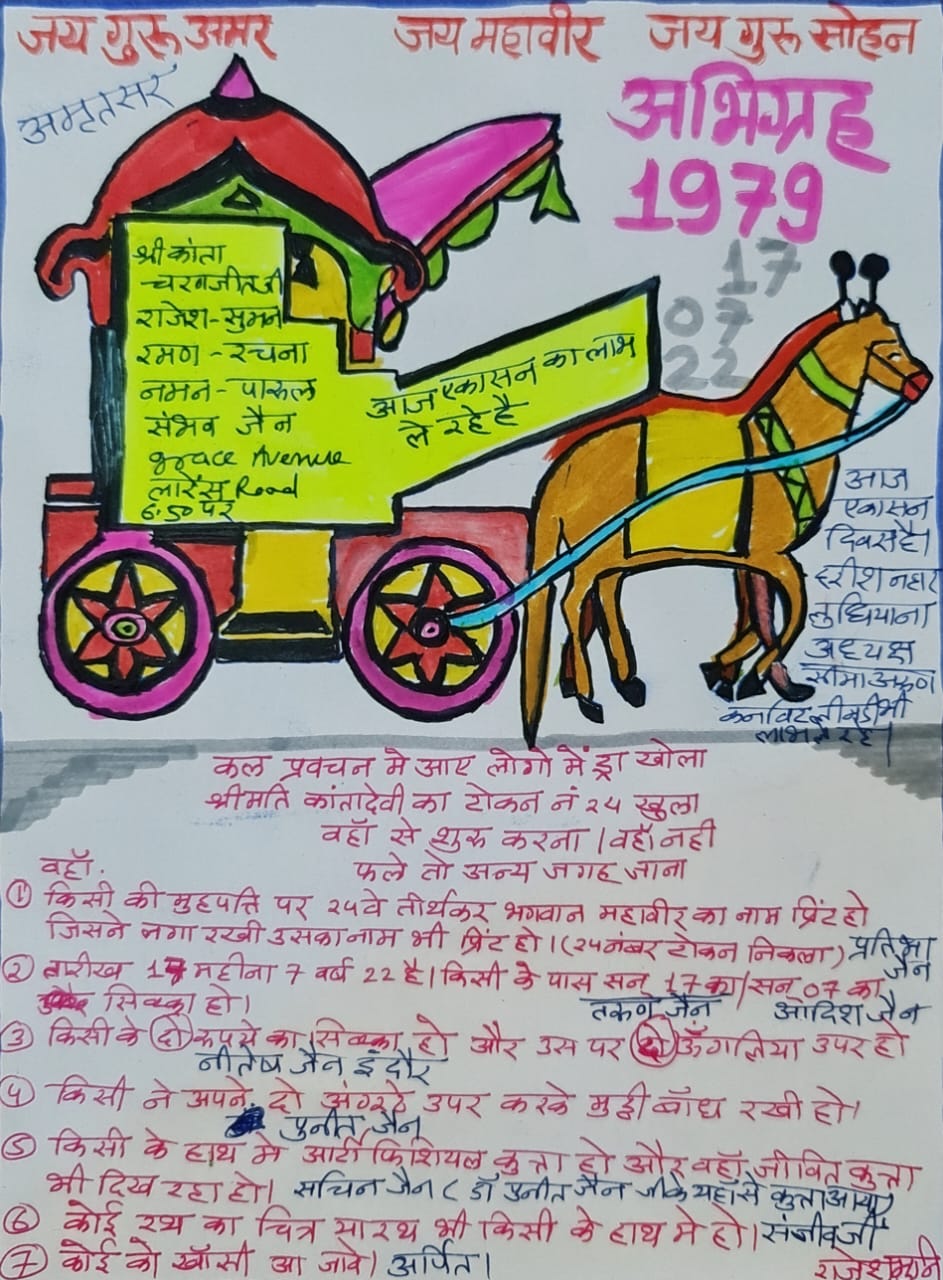 जय गुरू अमर जय महावीर जय गुरू सोहन
अमृतसर
अभिग्रह
1979
17
07
22
श्री कांता
चरनजीतजी
राजेश-सुमन
रमण-रचना
नमन-पारूल
संभव जैन
grace Avenue
लारेंस Road
6:50 पर
आज एकासन का लाभ
ले रहे है
आज
एकासन
दिवस है।
हरीश नहार
लुधियाना
अध्यक्ष
सीमा अरूण
भी
लाभ ले रहे।
कल प्रवचन मे आए लोगो में ड्रा खोला
श्रीमति कांतादेवी का टोकन नं २४ खुला
वहाँ से शुरू करना। वहाँ नही
फले तो अन्य जगह जाना
वहाँ.
① किसी की मुहपत्ति पर २४वे तीर्थकर भगवान महावीर का नाम प्रिंट हो
जिसने लगा रखी उसका नाम भी प्रिंट हो। (२४ नंबर टोकन निकला) प्रतिभा
जैन
② तारीख 17 महीना 7 वर्ष 22 है। किसी के पास सन् 17 का/सन् 07 का
सिक्का हो। तरूण जैन आदिश जैन
③ किसी के दो रूपये का सिक्का हो और उस पर दो ऊँगलिया उपर हो
नीतेष जैन इंदौर
④ किसी ने अपने दो अंगूठे उपर करके मुट्ठी बाँध रखी हो।
पुनीत जैन
⑤ किसी के हाथ मे आर्टीफिशियल कुत्ता हो और वहाँ जीवित कुत्ता
भी दिख रहा हो। सचिन जैन ( डॉ पुनीत जैन जी के यहाँ से कुत्ता आया)
⑥ कोई रथ का चित्र या रथ भी किसी के हाथ मे हो। संजीव जी
⑦ कोई को खाँसी आ जावे। अर्पित। राजेशमुनि